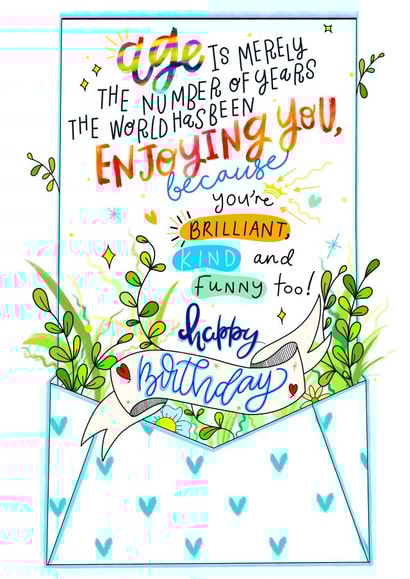 age IS MERELY
THE NUMBER OF YEARS
THE WORLD HAS BEEN
ENJOYING YOU,
because
you're
BRILLIANT,
KIND and
FUNNY too!
happy
Birthday